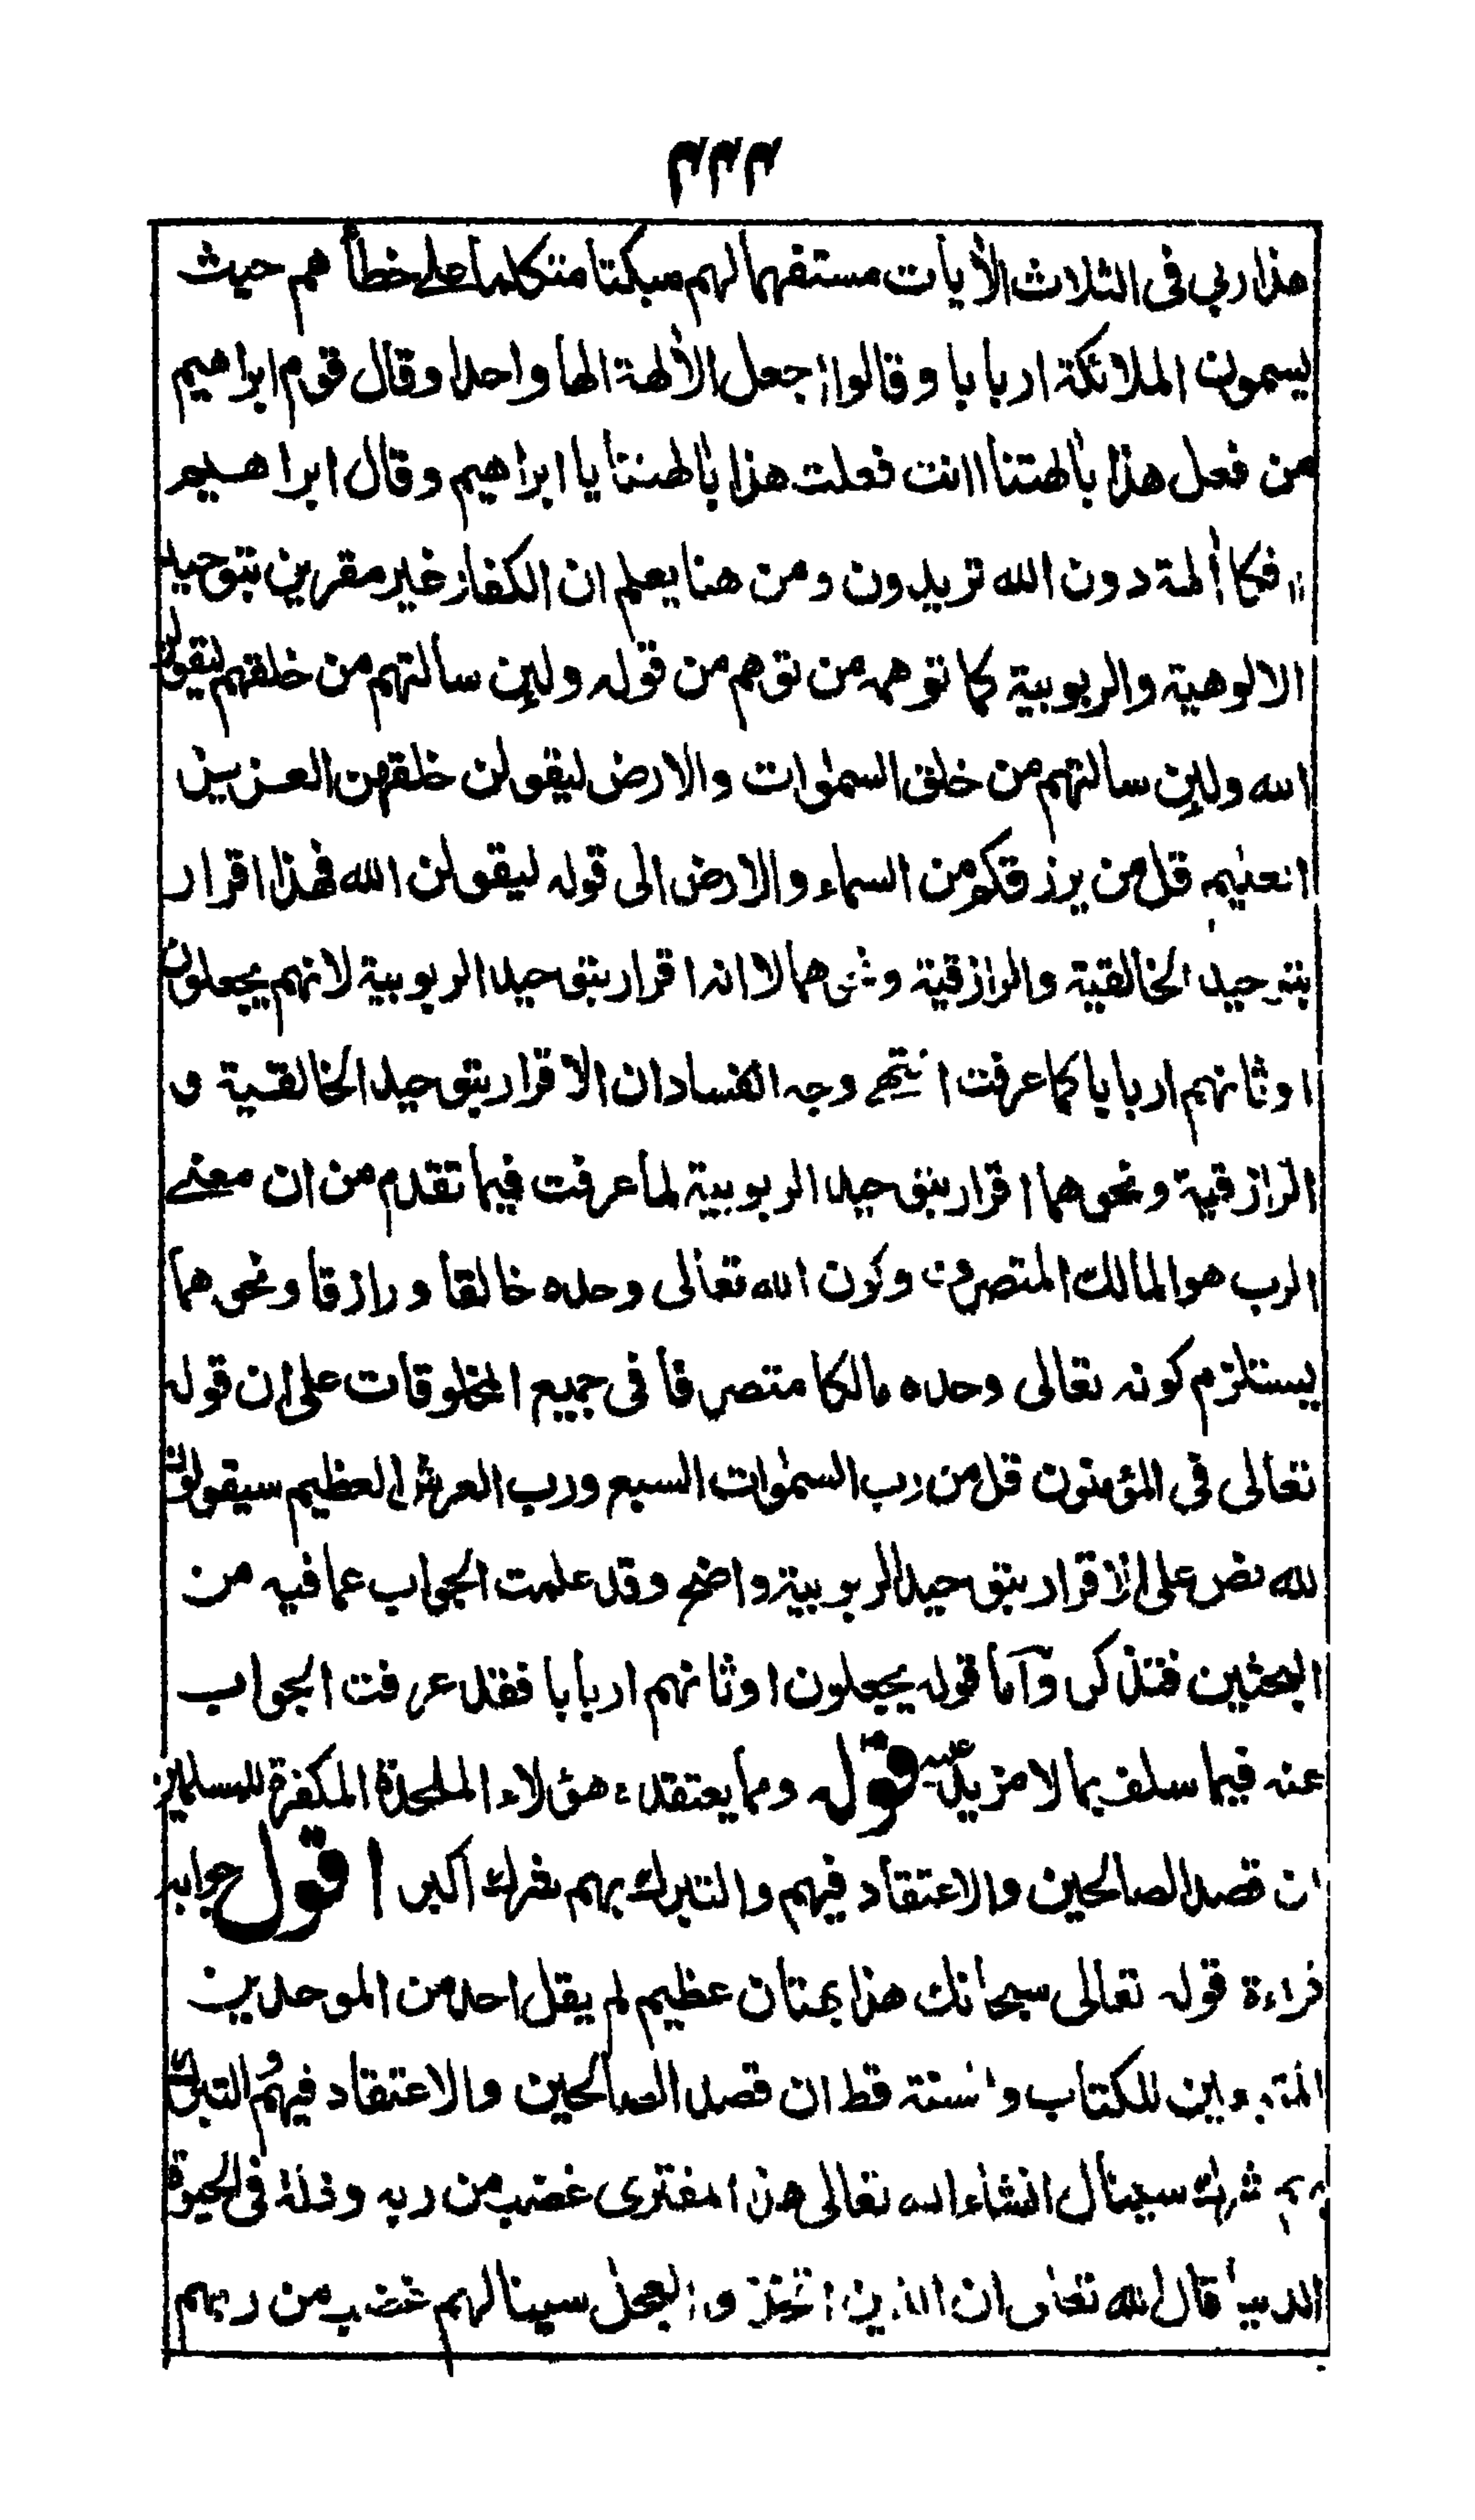 ٣٣٣
هذا ربي فى الثلاث الأيات مستفهما لهم مبكتا متكلما على خطأهم حيث
يسمون الملائكة اربابا وقالوا اجعل الألهة الها واحدا وقال قوم ابراهيم
من فعل هذا بألهتنا اانت فعلت هذا بألهتنا يا ابراهيم وقال ابراهيم
افكا ألهة دون الله تريدون ومن هنا يعلم ان الكفار غير مقرين بتوحيد
الالوهية والربوبية كما توهمه من توهم من قوله ولين سالتهم من خلقهم ليقولن
الله ولين سالتهم من خلق السمٰوات والارض ليقولن خلقهن العزيز
العليم قل من يرزقكم من السماء والارض الى قوله ليقولن الله فهذا اقرار
بتوحيد الخالقية والرازقية ونحوهما لا انه اقرار بتوحيد الربوبية لانهم يجعلون
اوثانهم اربابا كما عرفت انتهے وجه الفساد ان الاقرار بتوحيد الخالقية و
الرازقية ونحوهما اقرار بتوحيد الربوبية لما عرفت فيما تقدم من ان معنے
الرب هو المالك المتصرف وكون الله تعالى وحده خالقا ورازقا ونحوهما
يستلزم كونه تعالى وحده مالكا متصرفا فى جميع المخلوقات على ان قوله
تعالى في المؤمنون قل من رب السمٰوات السبع ورب العرش العظيم سيقولون
لله نص على الاقرار بتوحيد الربوبية واضح وقد علمت الجواب عما فيه من
البحثين فتذكر وآما قوله يجعلون اوثانهم اربابا فقد عرفت الجواب
عنه فيما سلف بما لا مزيد عليه قوله ومما يعتقده هؤلاء الملحدة المكفرة للمسلمين
ان قصد الصالحين والاعتقاد فيهم والتبرك بهم شرك اكبر اقول جوابه
قراءة قوله تعالى سبحانك هذا بهتان عظيم لم يقل احد من الموحدين
المتبعين للكتاب والسنة قط ان قصد الصالحين والاعتقاد فيهم والتبرك
بهم شرك سينال انشاء الله تعالى هذا المفترى غضب من ربه وذلة فى الحيوة
الدنيا قال الله تعالى ان الذين اتخذوا العجل سينالهم غضب من ربهم